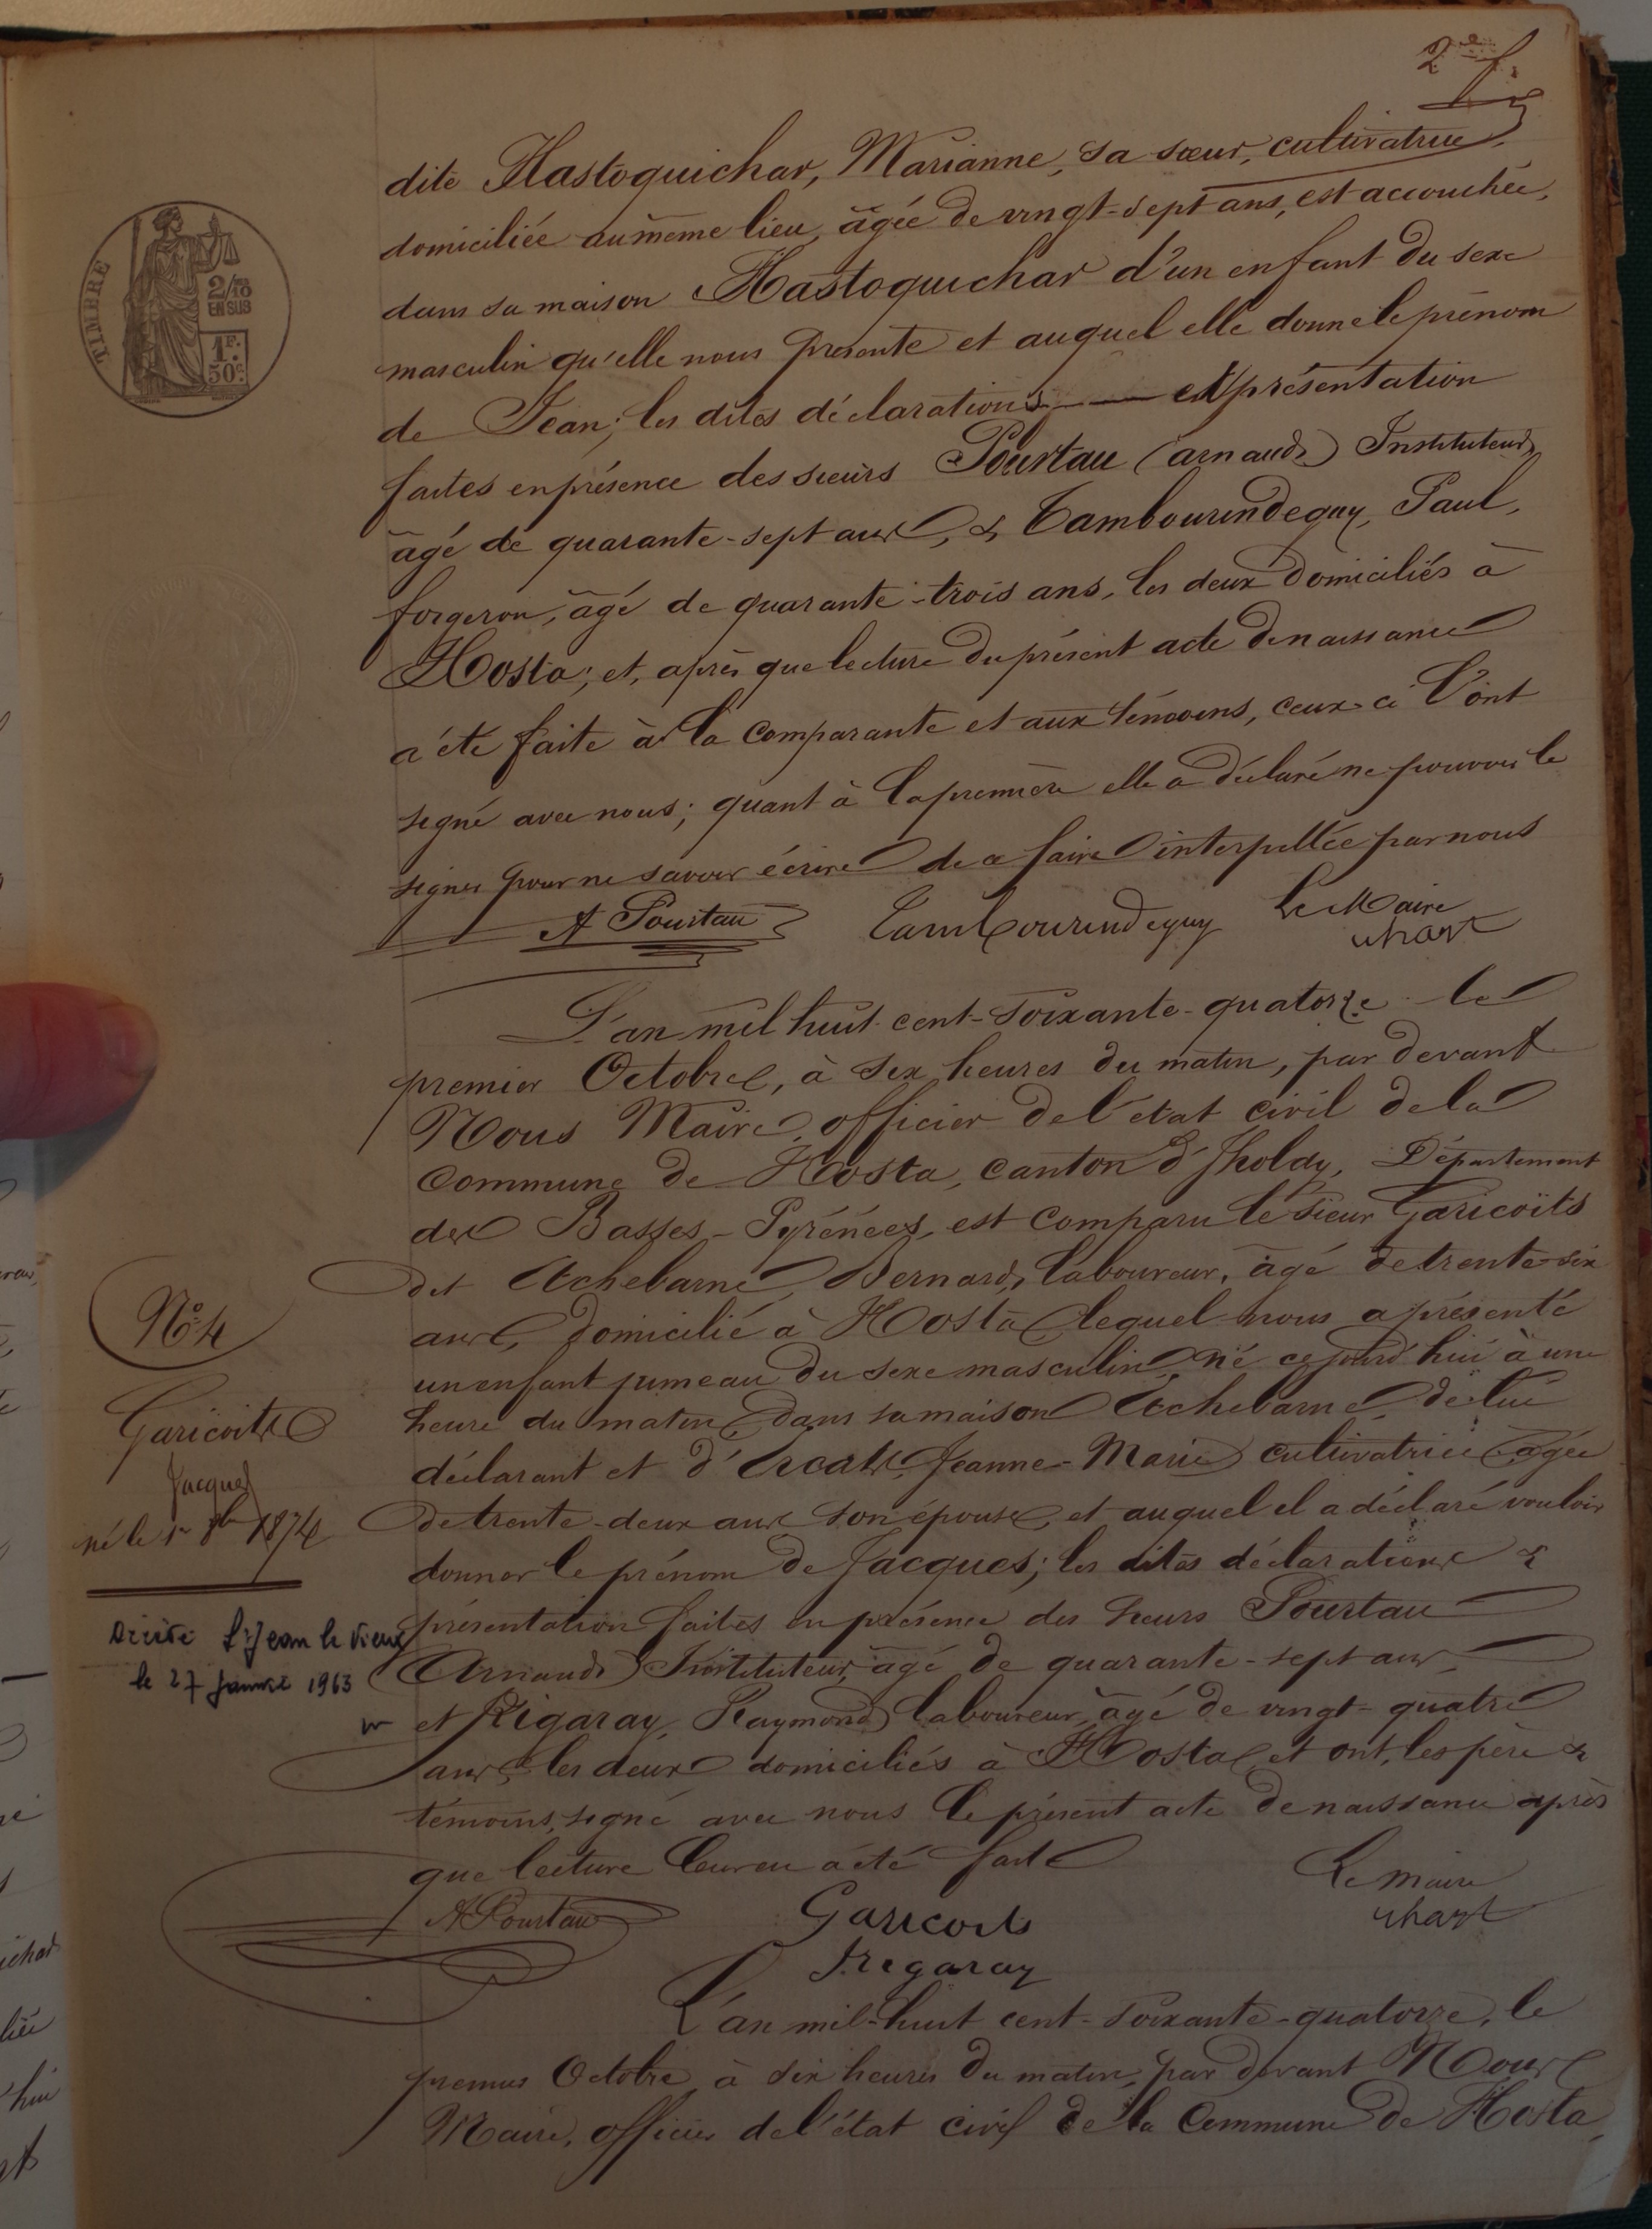 2e f.
TIMBRE
2/10
EN SUS
1F.
50c.
dite Hastoquichar, Marianne, sa sœur, cultivatrice,
domiciliée au même lieu, âgée de vingt-sept ans, est accouchée,
dans sa maison Hastoquichar d'un enfant du sexe
masculin qu'elle nous présente et auquel elle donne le prénom
de Jean; les dites déclarations et présentation
faites en présence des sieurs Pourtau (arnaud) Instituteur,
âgé de quarante-sept ans, & Tambourindeguy, Paul,
forgeron, âgé de quarante-trois ans, les deux domiciliés à
Hosta; et, après que lecture du présent acte de naissance
a été faite à la comparante et aux témoins, ceux-ci l'ont
signé avec nous; quant à la première elle a déclaré ne pouvoir le
signer pour ne savoir écrire de ce faire interpellée par nous
A Pourtau Tambourindeguy Le Maire
uhart
L'an mil huit cent-soixante-quatorze le
premier Octobre, à six heures du matin, par devant
Nous Maire, officier de l'état civil de la
commune de Hosta, canton d'Iholdy, Département
des Basses-Pyrénées, est comparu le sieur Garicoïts
dit Etchebarne, Bernard, laboureur, âgé de trente-six
ans, domicilié à Hosta lequel nous a présenté
un enfant jumeau du sexe masculin, né cejourd'hui à une
heure du matin, dans sa maison Etchebarne, de lui
déclarant et d' Jeanne-Marie cultivatrice, âgée
de trente-deux ans son épouse, et auquel il a déclaré vouloir
donner le prénom de Jacques; les dites déclarations &
présentation faites en présence des sieurs Pourtau
(Arnaud) Instituteur, âgé de quarante-sept ans,
et Irigaray, Raymond laboureur, âgé de vingt-quatre
ans, les deux domiciliés à Hosta, et ont, les père &
témoins, signé avec nous le présent acte de naissance après
que lecture leur en a été faite
N° 4
Garicoits
Jacques
né le 1er 8bre 1874
Décédé St Jean le Vieux
le 27 Janvier 1963
A Pourtau Garicoits Le Maire
uhart
Irigaray
L'an mil-huit cent-soixante-quatorze, le
premier Octobre, à six heures du matin, par devant Nous
Maire, officier de l'état civil de la Commune de Hosta,